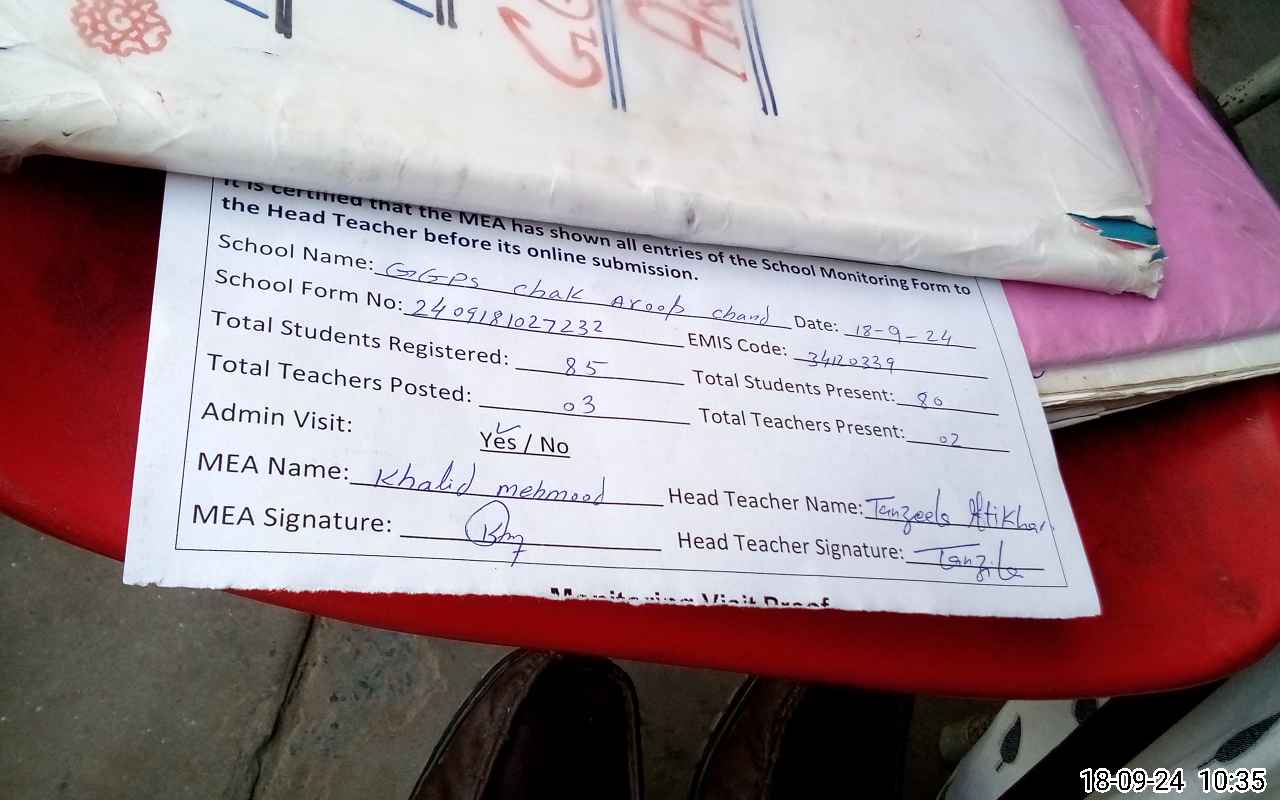 GG
AR
It is certified that the MEA has shown all entries of the School Monitoring Form to
the Head Teacher before its online submission.
School Name: GGPS chak Aroop chand Date: 18-9-24
School Form No: 2409181027232 EMIS Code: 34120339
Total Students Registered: 85 Total Students Present: 80
Total Teachers Posted: 03 Total Teachers Present: 02
Admin Visit: Yes / No
MEA Name: Khalid mehmood Head Teacher Name: Tanzeela Iftikhar
MEA Signature: Head Teacher Signature: Tanzila
Monitoring Visit Proof
18-09-24 10:35